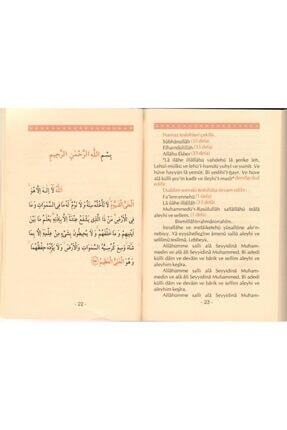 بِسْمِ اللّٰهِ الرَّحْمٰنِ الرَّحِيمِ
اَللّٰهُ لَا اِلٰهَ اِلَّا هُوَ
الْحَيُّ الْقَيُّومُ لَا تَأْخُذُهُ سِنَةٌ وَلَا نَوْمٌ لَهُ مَا فِي السَّمٰوَاتِ وَمَا
فِي الْاَرْضِ مَنْ ذَا الَّذِي يَشْفَعُ عِنْدَهُ اِلَّا بِاِذْنِهِ يَعْلَمُ مَا بَيْنَ
اَيْدِيهِمْ وَمَا خَلْفَهُمْ وَلَا يُحِيطُونَ بِشَيْءٍ مِنْ عِلْمِهِ اِلَّا بِمَا
شَاءَ وَسِعَ كُرْسِيُّهُ السَّمٰوَاتِ وَالْاَرْضَ وَلَا يَؤُدُهُ حِفْظُهُمَا
وَهُوَ الْعَلِيُّ الْعَظِيمُ
- 22 -
Namaz tesbihleri çekilir.
Sübhânallâh (33 defa)
Elhamdülillâh (33 defa)
Allâhu Ekber (33 defa)
"Lâ ilâhe illallâhü vahdehû lâ şerike leh,
Lehül-mülkü ve lehü'l-hamdü yuhyî ve yümît. Ve
hüve hayyün lâ yemût. Bi yedihi'l-ḫayr. Ve hüve
alâ külli şey'in kadîr ve ileyhi'l masîr"
Fa'lem ennehû (1 defa)
Lâ ilâhe illallâh (33 defa)
Muhammedü'r-Rasûlullah sallallâhü teâlâ
aleyhi ve sellem. (1 defa)
Bismillâhirrahmânirrahîm.
İnnallâhe ve melâiketehû yüsallûne ale'n-
nebiyy. Yâ eyyühellezîne âmenû sallû aleyhi ve
sellimû teslîmâ. Lebbeyk.
Allâhümme salli alâ Seyyidinâ Muham-
medin ve alâ âli Seyyidinâ Muhammed. Bi adedi
külli dâin ve devâin ve bârik ve sellim aleyhi ve
aleyhim kesîra.
Allâhümme salli alâ Seyyidinâ Muham-
medin ve alâ âli Seyyidinâ Muhammed. Bi adedi
külli dâin ve devâin ve bârik ve sellim aleyhi ve
aleyhim kesîra.
Allâhümme salli alâ Seyyidinâ Muham-
- 23 -